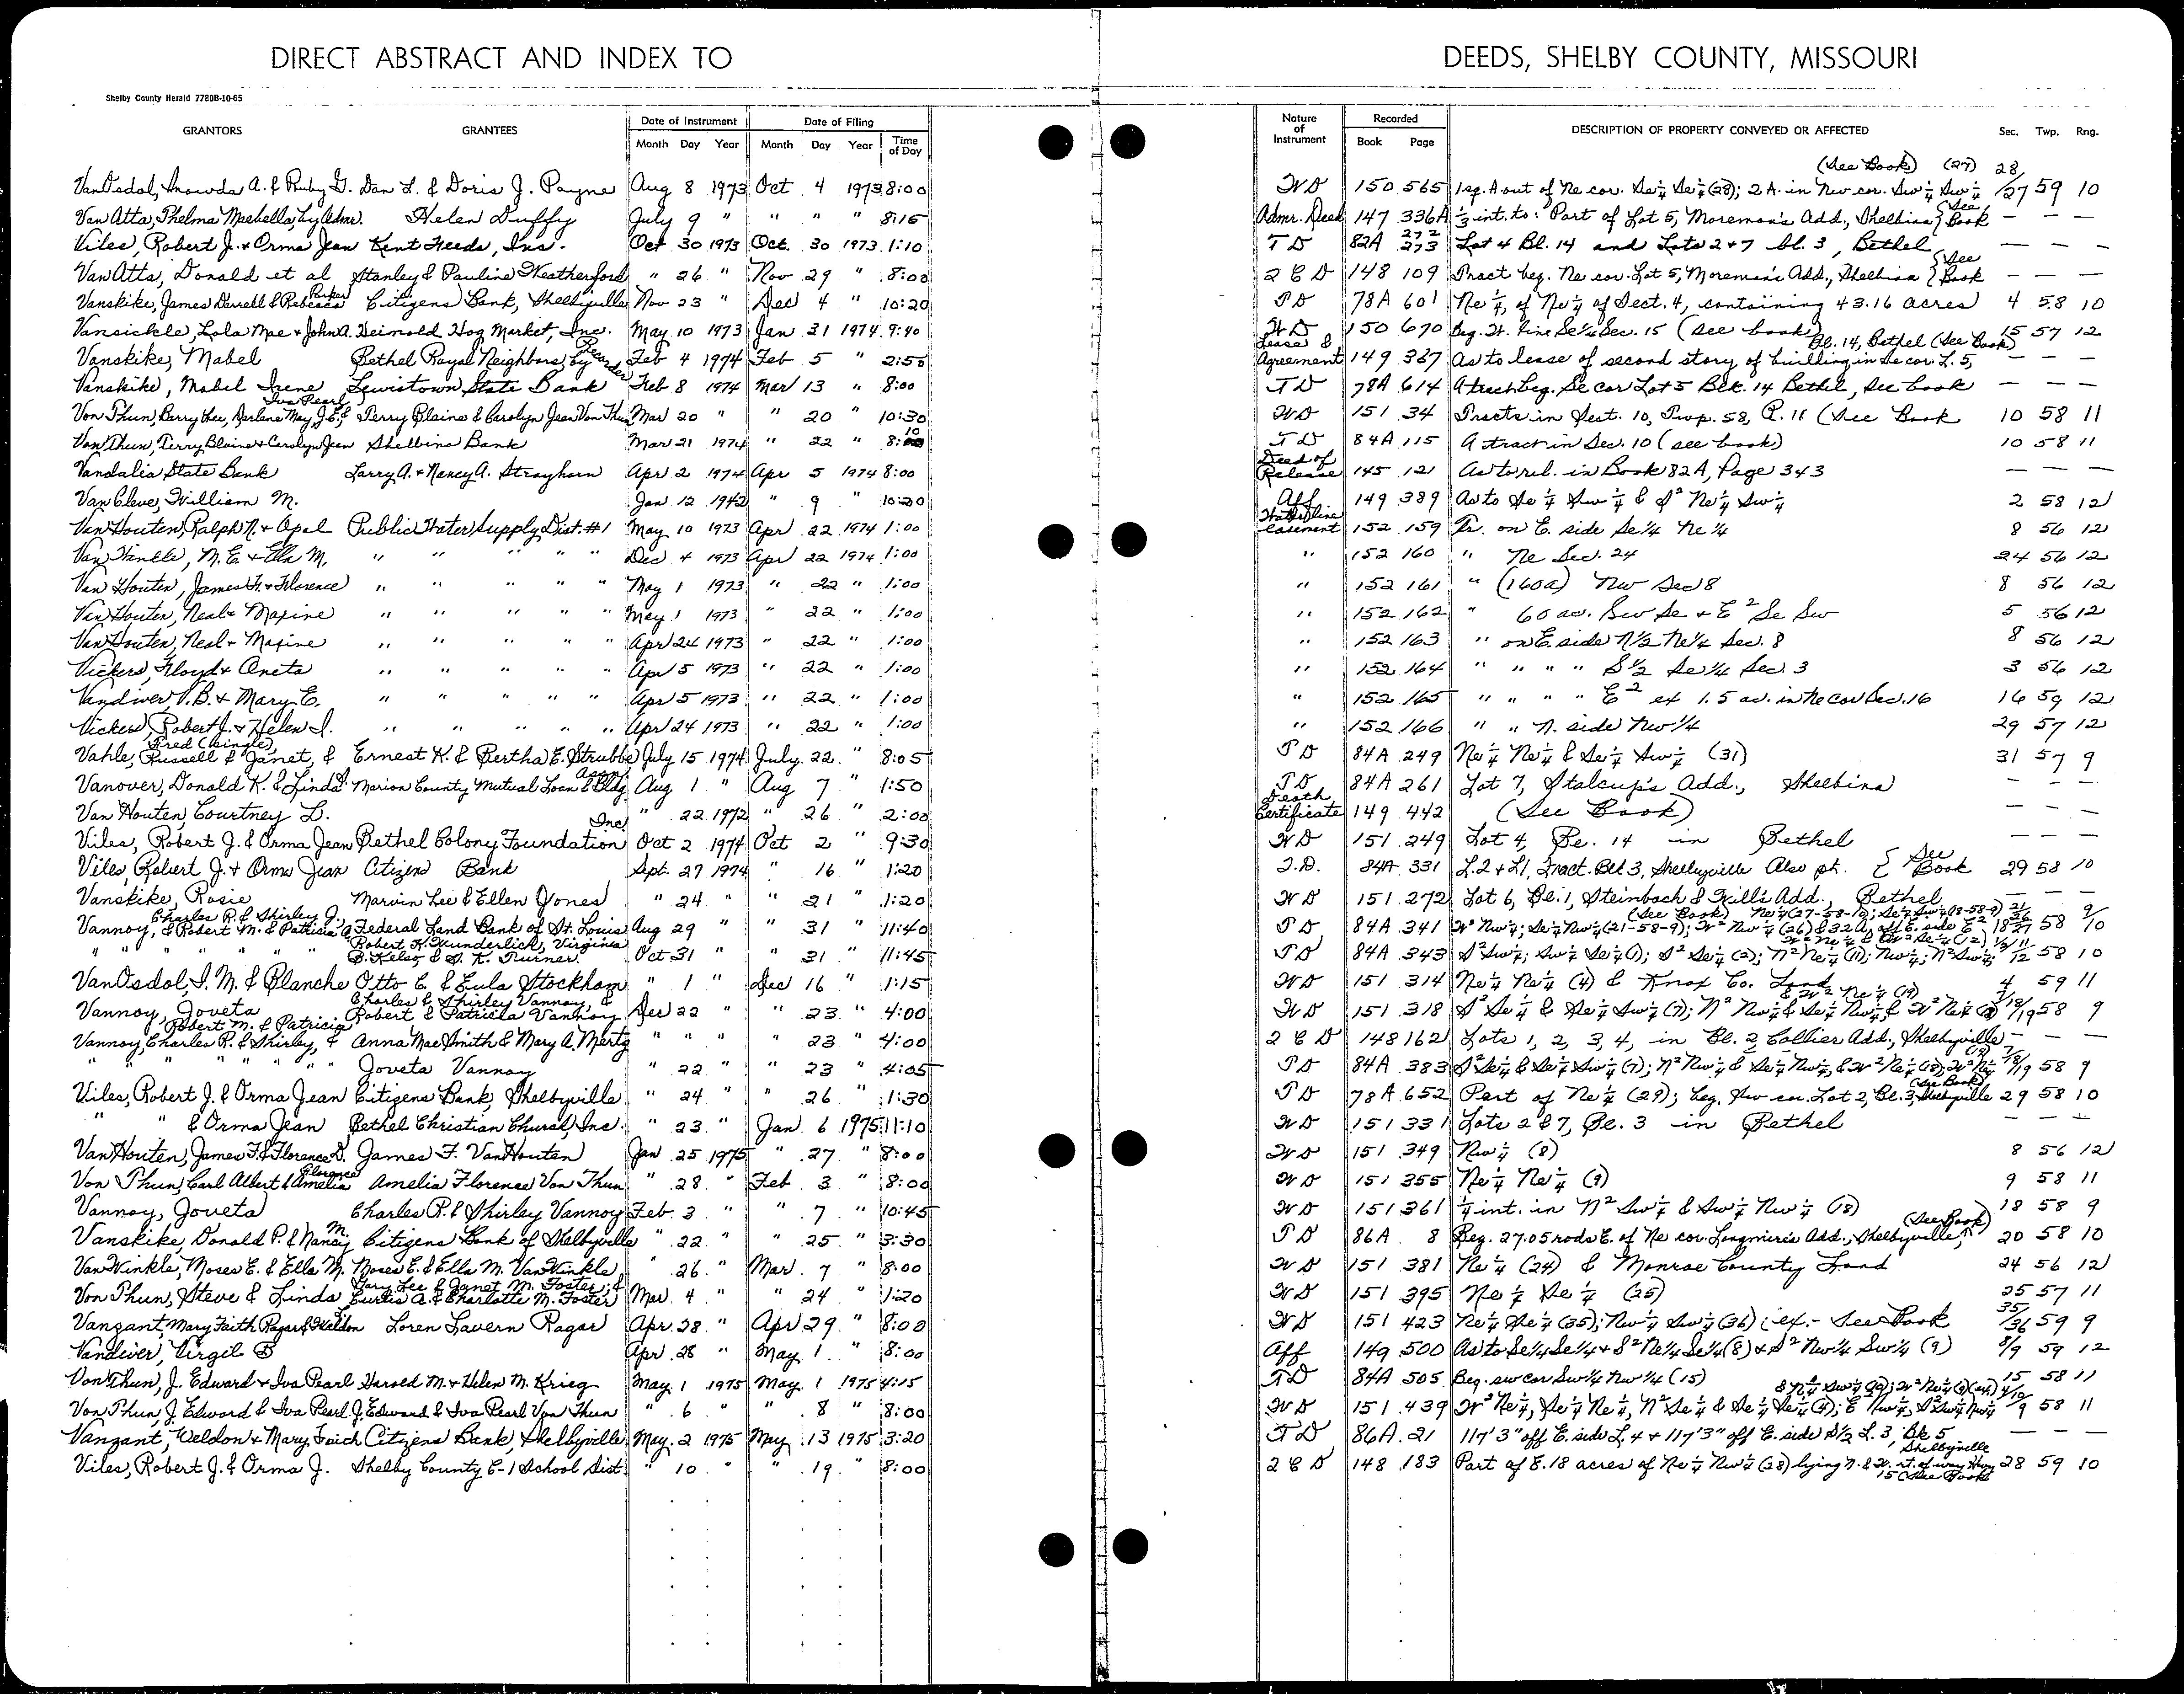 DIRECT ABSTRACT AND INDEX TO DEEDS, SHELBY COUNTY, MISSOURI
Shelby County Herald 7780B-10-65
GRANTORS GRANTEES Date of Instrument Month Day Year Date of Filing Month Day Year Time of Day Nature of Instrument Recorded Book Page DESCRIPTION OF PROPERTY CONVEYED OR AFFECTED Sec. Twp. Rng.
(See Book) (27) 28
VanOsdol, A. & Ruby G. Dan L. & Doris J. Payne Aug 8 1973 Oct 4 1973 8:00 WD 150 565 1 sq. A out of Ne cor. Se¼ Se¼ (28); 2 A. in Nw cor. Sw¼ Sw¼ /27 59 10
Van Atta, Thelma Maebella, by Admr. Helen Duffy July 9 " " " " 8:15 Admr. Deed 147 336A ⅓ int. to: Part of Lot 5, Moreman's Add., Shelbina {See Book — — —
Viles, Robert J. & Orma Jean Kent Feeds, Inc. Oct 30 1973 Oct. 30 1973 1:10 TD 82A 272 273 Lot 4 Bl. 14 and Lots 2+7 bl. 3, Bethel — — —
VanAtta, Donald et al Stanley & Pauline Weatherford " 26 " Nov 29 " 8:00 2 C D 148 109 Tract beg. Ne cor. Lot 5, Moreman's Add., Shelbina {See Book — — —
Vanskike, James Darrell & Rebecca Parker Citizens Bank, Shelbyville Nov 23 " Dec 4 " 10:20 TD 78A 601 Ne¼, of Ne¼ of Sect. 4, containing 43.16 acres 4 58 10
Vansickle, Lola Mae + John A. Heinold Hog Market, Inc. May 10 1973 Jan 31 1974 9:40 WD 150 670 Beg. W. line Se¼ Sec. 15 (see book) 15 57 12
Vanskike, Mabel Bethel Royal Neighbors, by Feb 4 1974 Feb 5 " 2:55 Lease & Agreement 149 367 As to lease of second story of building in Se cor. L. 5, Bl. 14, Bethel (See Book) — — —
Vanskike, Mabel Irene Lewistown State Bank Feb 8 1974 Mar 13 " 8:00 TD 78A 614 A tract beg. Se cor Lot 5 Blk. 14 Bethel, see book — — —
Von Thun, Larry Lee, Darlene May, J.E. & Iva Pearl Terry Blaine & Carolyn Jean Von Thun Mar 20 " " 20 " 10:30 WD 151 34 Tracts in Sect. 10, Twp. 58, R. 11 (See Book 10 58 11
Von Thun, Terry Blaine + Carolyn Jean Shelbina Bank Mar 21 1974 " 22 " 8:10 TD 84A 115 A tract in Sec. 10 (see book) 10 58 11
Vandalia State Bank Larry A. + Nancy A. Strayhorn Apr 2 1974 Apr 5 1974 8:00 Deed of Release 145 121 As to rel. in Book 82A, Page 343 — — —
Van Cleve, William M. Jan 12 1942 " 9 " 10:20 Aff 149 389 As to Se¼ Sw¼ & S² Ne¼ Sw¼ 2 58 12
Van Houten, Ralph N. + Opal Public Water Supply Dist. #1 May 10 1973 Apr 22 1974 1:00 Water line Easement 152 159 Tr. on E. side Se¼ Ne¼ 8 56 12
Van Winkle, M. E. + Ella M. " " " " " Dec 4 1973 Apr 22 1974 1:00 " 152 160 " Ne Sec. 24 24 56 12
Van Houten, James F. + Florence " " " " " May 1 1973 " 22 " 1:00 " 152 161 " (160a) Nw Sec 8 8 56 12
Van Houten, Neal + Maxine " " " " " May 1 1973 " 22 " 1:00 " 152 162 " 60 ac. Sw Se + E² Se Sw 5 56 12
Van Houten, Neal + Maxine " " " " " Apr 24 1973 " 22 " 1:00 " 152 163 " on E. side N½ Ne¼ Sec. 8 8 56 12
Vickers, Floyd + Aneta " " " " " Apr 5 1973 " 22 " 1:00 " 152 164 " " " " S½ Se¼ Sec. 3 3 56 12
Vandiver, V.B. + Mary E. " " " " " Apr 5 1973 " 22 " 1:00 " 152 165 " " " " E² ex 1.5 ac. in Ne cor Sec. 16 16 59 12
Vickers, Robert J. + Helen I. " " " " " Apr 24 1973 " 22 " 1:00 " 152 166 " " N. side Nw¼ 29 57 12
Vahle, Russell & Janet, & Fred (single) Ernest K. & Bertha E. Strubbe July 15 1974 July 22 " 8:05 TD 84A 249 Ne¼ Ne¼ & Se¼ Sw¼ (31) 31 57 9
Vanover, Donald K. & Linda Marion County Mutual Loan & Bldg Assn Aug 1 " Aug 7 " 1:50 TD 84A 261 Lot 7, Stalcup's Add., Shelbina — — —
Van Houten, Courtney L. " 22 1972 " 26 " 2:00 Death Certificate 149 442 (See Book) — — —
Viles, Robert J. & Orma Jean Bethel Colony Foundation Inc Oct 2 1974 Oct 2 " 9:30 WD 151 249 Lot 4, Bl. 14 in Bethel — — —
Viles, Robert J. + Orma Jean Citizens Bank Sept. 27 1974 " 16 " 1:20 T.D. 84A 331 L. 2 + L1, Tract. Blk 3, Shelbyville Also pt. {See Book 29 58 10
Vanskike, Rosie Marvin Lee & Ellen Jones " 24 " " 21 " 1:20 WD 151 272 Lot 6, Bl. 1, Steinbach & Will's Add., Bethel
Vannoy, Charles R. & Shirley J. & Robert M. & Patricia Federal Land Bank of St. Louis Aug 29 " " 31 " 11:40 TD 84A 341 (See Book) 58 9/10
" " " " " Robert K. Wunderlich, Virginia B. Kelso & Turner Oct 31 " " 31 " 11:45 TD 84A 343 58 10
VanOsdol, I. M. & Blanche Otto C. & Eula Stockham " 1 " Dec 16 " 1:15 WD 151 314 Ne¼ Ne¼ (4) & Knox Co. Land 4 59 11
Vannoy, Joveta Charles & Shirley Vannoy, & Robert & Patricia Vannoy Dec 22 " " 23 " 4:00 WD 151 318 S² Se¼ & Se¼ Sw¼ (7); N² Nw¼ & Se¼ Nw¼ & W² Ne¼ & W² Ne¼ (19) 7/18/19 58 9
Vannoy, Charles R. & Shirley, & Robert M. & Patricia Anna Mae Smith & Mary A. Mertz " " " " 23 " 4:00 2 C D 148 162 Lots 1, 2, 3, 4, in Bl. 2, Collier Add., Shelbyville — — —
" " " " " Joveta Vannoy " 22 " " 23 " 4:05 TD 84A 383 S² Se¼ & Se¼ Sw¼ (7); N² Nw¼ & Se¼ Nw¼, & W² Ne¼ (18); W² Ne¼ (19) 7/18/19 58 9
Viles, Robert J. & Orma Jean Citizens Bank, Shelbyville " 24 " " 26 " 1:30 TD 78A 652 Part of Ne¼ (29); beg. Sw cor. Lot 2, Bl. 3, Shelbyville (See Book) 29 58 10
" " & Orma Jean Bethel Christian Church, Inc. " 23 " Jan 6 1975 11:10 WD 151 331 Lots 2 & 7, Bl. 3 in Bethel — — —
Van Houten, James F. & Florence D. James F. VanHouten Jan 25 1975 " 27 " 8:00 WD 151 349 Nw¼ (8) 8 56 12
Von Thun, Carl Albert & Amelia Florence Amelia Florence Von Thun " 28 " Feb 3 " 8:00 WD 151 355 Ne¼ Ne¼ (9) 9 58 11
Vannoy, Joveta Charles R. & Shirley Vannoy Feb. 3 " " 7 " 10:45 WD 151 361 ¼ int. in N² Sw¼ & Sw¼ Nw¼ (18) 18 58 9
Vanskike, Donald P. & Nancy M. Citizens Bank of Shelbyville " 22 " " 25 " 3:30 TD 86A 8 Beg. 27.05 rods E. of Ne cor. Longmire's Add., Shelbyville (See Book) 20 58 10
Van Winkle, Moses E. & Ella M. Moses E. & Ella M. VanWinkle " 26 " Mar. 7 " 8:00 WD 151 381 Ne¼ (24) & Monroe County Land 24 56 12
Von Thun, Steve & Linda Gary Lee & Janet M. Foster; & Curtis A. & Charlotte M. Foster Mar. 4 " " 24 " 1:20 WD 151 395 Ne¼ Se¼ (25) 25 57 11
Vanzant, Mary Faith Ragar & Weldon Loren Lavern Ragar Apr. 28 " Apr 29 " 8:00 WD 151 423 Ne¼ Se¼ (35); Nw¼ Sw¼ (36); ex.- See Book 35/36 59 9
Vandiver, Virgil B Apr 28 " May 1 " 8:00 Aff 149 500 As to Se¼ Se¼ + S² Ne¼ Se¼ (8) + S² Nw¼ Sw¼ (9) 8/9 59 12
Von Thun, J. Edward + Iva Pearl Harold M. + Helen M. Krieg May 1 1975 May 1 1975 4:15 TD 84A 505 Beg. sw cor Sw¼ Nw¼ (15) 15 58 11
Von Thun, J. Edward & Iva Pearl J. Edward & Iva Pearl Von Thun " 6 " " 8 " 8:00 WD 151 439 W² Ne¼, Se¼ Ne¼, N² Se¼ & Se¼ Se¼ (4); 58 11
Vanzant, Weldon + Mary Faith Citizens Bank, Shelbyville May 2 1975 May 13 1975 3:20 TD 86A 21 117'3" off E. side L. 4 + 117'3" off E. side S½ L. 3, Bk 5, Shelbyville — — —
Viles, Robert J. & Orma J. Shelby County C-1 School Dist. " 10 " " 19 " 8:00 2 C D 148 183 Part of E. 18 acres of Ne¼ Nw¼ (28) lying N. & W. rt. of way Hwy 15 (See Book 28 59 10